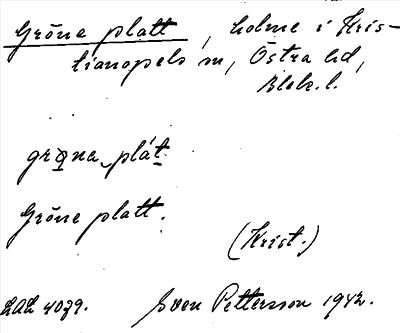 Gröne platt, holme i Kris-
tianopels sn, Östra hd,
Blek. l.
grǫna plát
Gröne platt.
(Krist.)
LAL 4079. Sven Pettersson 1942.